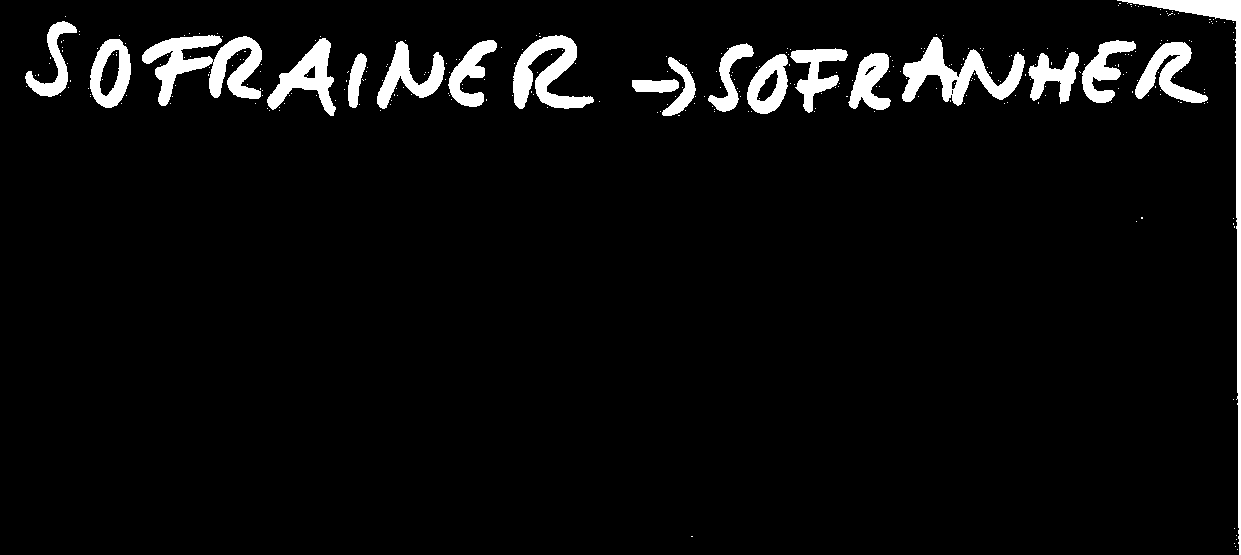 SOFRAINER → SOFRANHER